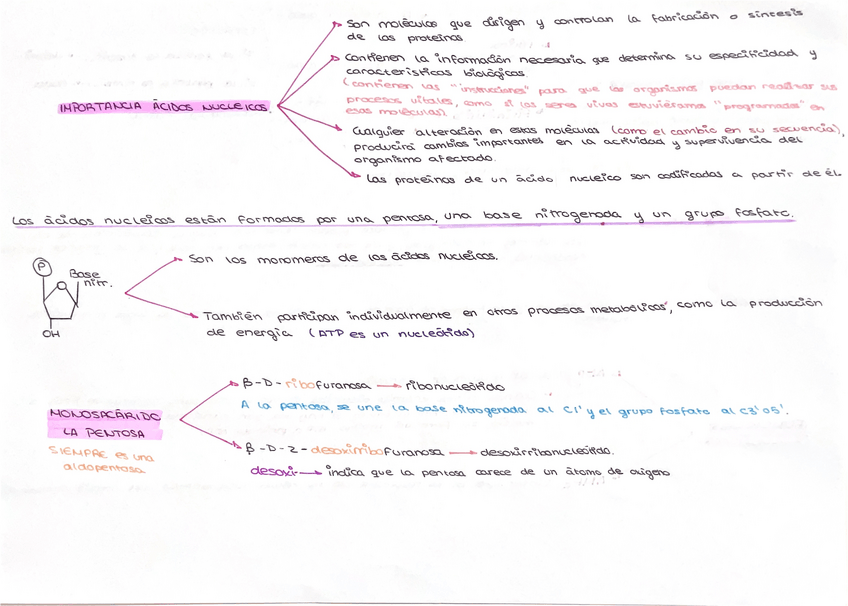 Son moléculas que dirigen y controlan la fabricación o síntesis
de las proteínas
Contienen la información necesaria que determina su especificidad y
características biológicas.
(contienen las "instrucciones" para que los organismos puedan realizar sus
procesos vitales, como si los seres vivos estuviéramos "programados" en
esas moléculas).
IMPORTANCIA ÁCIDOS NUCLEICOS.
Cualquier alteración en estas moléculas (como el cambio en su secuencia),
producirá cambios importantes en la actividad y supervivencia del
organismo afectado.
Las proteínas de un ácido nucleico son codificadas a partir de él.
Los ácidos nucleicos están formados por una pentosa, una base nitrogenada y un grupo fosfato.
P
Base
nitr.
OH
Son los monomeros de los ácidos nucleicos.
También participan individualmente en otros procesos metabólicos, como la producción
de energía (ATP es un nucleótido)
β-D-ribofuranosa → ribonucleótido
A la pentosa, se une la base nitrogenada al C1' y el grupo fosfato al C3' o 5'.
MONOSACÁRIDO
LA PENTOSA
SIEMPRE es una
aldopentosa
β-D-2-desoxirribofuranosa → desoxirribonucleótido.
desoxi- → indica que la pentosa carece de un átomo de oxígeno